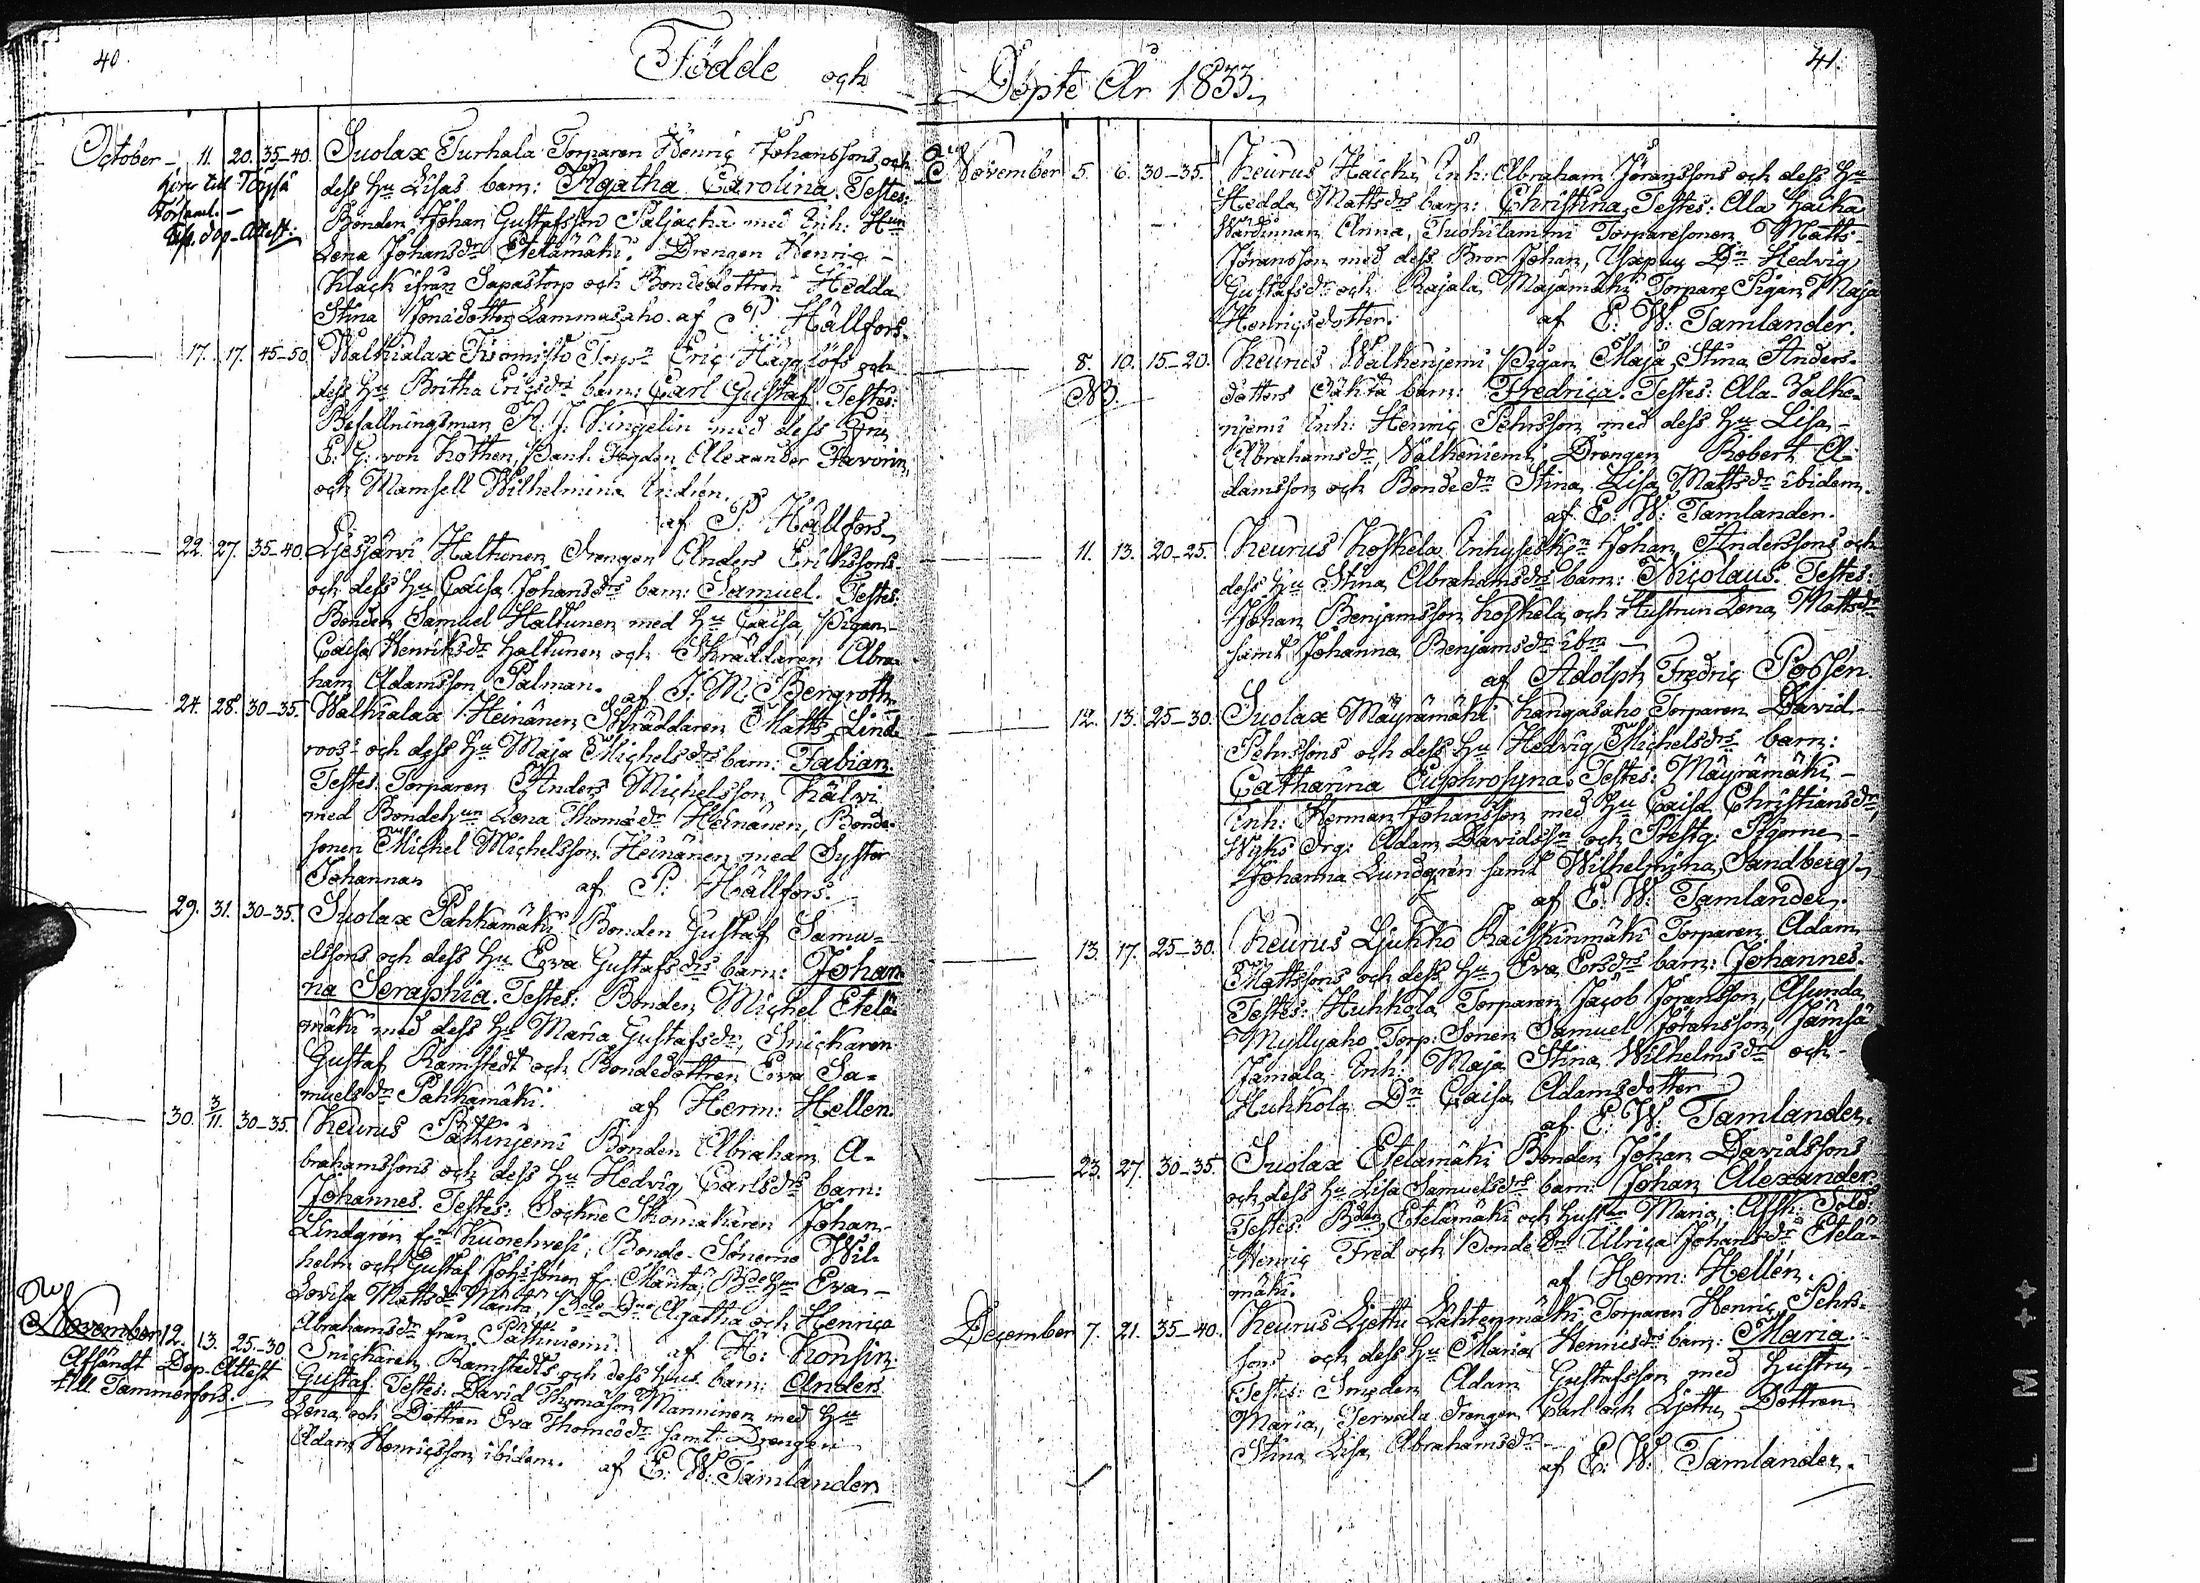 40.
Födde och
October - 11. 20. 35-40. Suolax Turhala Torparen Henric Johanssons och
hörer till Töysä dess Hu Lisas barn: Agatha Carolina. Testes:
Församl. - Bonden Johan Gustafsson Paljacka med Inh: Hun
Lena Johansdr Etelämäki. Drengen Henric -
Klack ifrån Sapastorp och Bondedottren Hedda
Stina Jonædotter Lammasaho. af P: Hällfors.
17. 17. 45-50. Walkialax Tisomisto Torpn Eric Hägglöfs och
dess Hu Britha Ericsdrs barn: Carl Gustaf. Testes:
Befallningsman A. J. Kingelin med dess Fru
E. G: von Kothen, Alexander Favorin,
och Mamsell Wilhelmina Indrén.
af P. Hällfors
22. 27. 35-40. Liesjärvi Haltunen Drengen Anders Erikssons
och dess Hu Caisa Johansdrs barn: Samuel. Testes:
Bonden Samuel Haltunen med Hu Caisa, Pigan
Caisa Henriksdr Haltunen och Skräddaren Abra-
ham Adamsson Palman. af J: M: Bergroth
24. 28. 30-35. Walkialax Heinänen Skräddaren Matts Lind-
roos's och dess Hu Maja Michelsdrs barn: Fabian.
Testes: Torparen Anders Michelsson Kälvi
med Bondehun Lena Thomædr Heinänen, Bonde-
sonen Michel Michelsson Heinänen med Syster
Johanna af P: Hällfors.
29. 31. 30-35. Suolax Pahkamäki Bonden Gustaf Samu-
elssons och dess Hu Eva Gustafsdrs barn: Johan-
na Seraphia. Testes: Bonden Michel Etelä-
mäki med dess Hu Maria Gustafsdr, Snickaren
Gustaf Ramstedt och Bondedottren Eva Sa-
muelsdr Pahkamäki. af Herm: Hellen.
30. 3/11. 30-35. Keurus Pättinjemi Bonden Abraham A-
brahamssons och dess Hu Hedvig Carlsdrs barn:
Johannes. Testes: Sockne Skomakaren Johan
Lindgren fr Kuorehvesi, Bonde-Sönerne Wil-
helm och Gustaf Johssöner fr Mänta, Eva
Lovisa Mattsdr Mänta, Agatha och Henrica
Abrahamsdr från Pättiniemi. af H: Konsin.
November 12. 13. 25-30 Snickaren Ramstedts och dess Hus barn: Anders
Afsändt Dop-Attest Gustaf. Testes: David Thomasson Manninen med Hu
till Tammerfors. Lena och Dottren Eva Thomædr samt Drengen
Adam Henricsson ibidem. af E: W: Tamlander
41.
Döpte År 1833.
November 5. 6. 30-35. Keurus Haicka Inh: Abraham Jöranssons och dess Hu
Hedda Mattsdrs barn: Christina. Testes: Ala Haika
Wärdinnan Anna, Tuohilammi Torparesonen Matts
Jöransson med dess Bror Johan, Hedvig
Gustafsdr och Rajala Majamäki Torpare Pigan Maja
Henricsdotter. af E: W: Tamlander.
8. 10. 15-20. Keurus Walkenjemi Pigan Maja Stina Anders-
NB. dotters Oäkta barn: Fredrica. Testes: Ala-Valke-
njemi Inh: Henric Pehrsson med dess Hu Lisa
Abrahamsdr, Walkeniemi Drengen Robert A-
damsson och Bondedn Stina Lisa Mattsdr ibidem.
af E: W: Tamlander.
11. 13. 20-25. Keurus Koskela Johan Anderssons och
dess Hu Stina Abrahamsdrs barn: Nicolaus. Testes:
Johan Benjamsson Koskela och Hustrun Lena Mattsdr
samt Johanna Benjamsdr ibm -
af Adolph Fredric Possén.
12. 13. 25-30. Suolax Mäyrämäki Kangasaho Torparen David
Pehrssons och dess Hu Hedvig Michelsdrs barn:
Catharina Euphrosyna. Testes: Mäyrämäki -
Inh: Herman Johansson med Hu Caisa Christiansdr,
Wyks Drg: Adam Davidssn och Prestg: Pigorne -
Johanna Lundgren samt Wilhelmina Sandberg
af E: W: Tamlander.
13. 17. 25-30. Keurus Ljukko Raiskinmäki Torparen Adam
Mattssons och dess Hu Eva Ersdrs barn: Johannes.
Testes: Huhkola Torparen Jacob Jöransson, Asunda
Myllyaho Torp: Sonen Samuel Jöransson, Jämsä
Jamala Inh: Maja Stina Wilhelmsdr och
Huhkola Dn Caisa Adamsdotter
af E: W: Tamlander.
23. 27. 30-35. Suolax Etelämäki Bonden Johan Davidssons
och dess Hu Lisa Samuelsdrs barn: Johan Alexander.
Testes: Bden Etelämäki och Hustrun Maria, Afsk: Sold:
Henric Fred och Bonde Drn Ulrica Johansdr Etelä-
mäki. af Herm: Hellén.
December 7. 21. 35-40. Keurus Ljettu Lähtenmäki Torparen Henric Pehrs-
sons och dess Hu Maria Henricsdrs barn: Maria.
Testes: Smeden Adam Gustafsson med Hustru
Maria, Tervala drengen Carl och Ljettu Dottren
Stina Lisa Abrahamsdr -
af E: W: Tamlander.
I L M